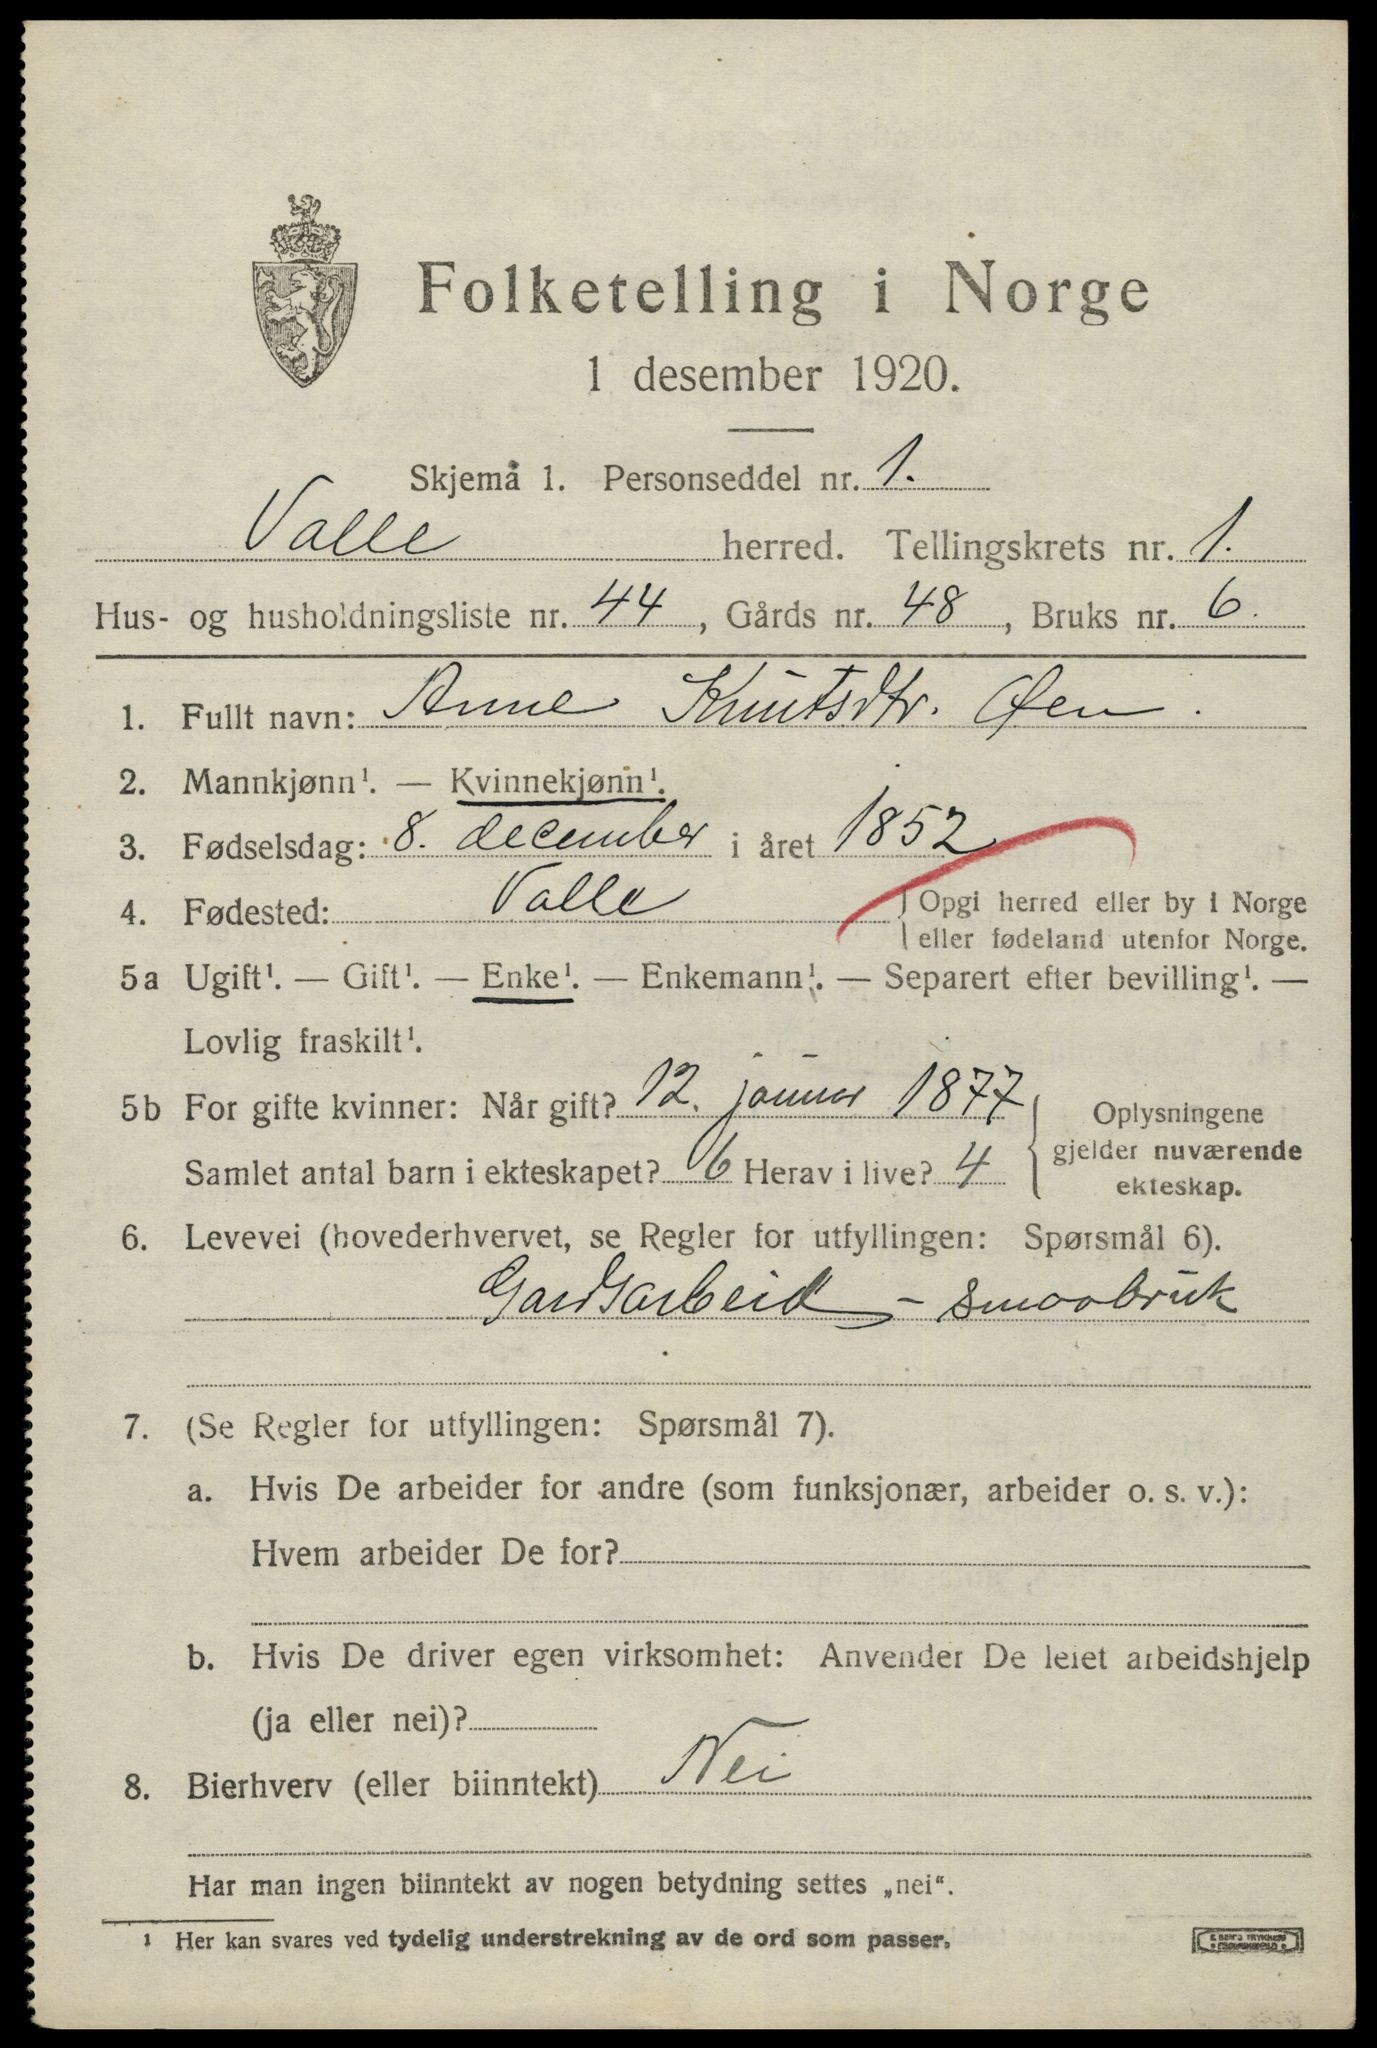 Folketelling i Norge
1 desember 1920.
Skjema 1. Personseddel nr. 1.
Valle herred. Tellingskrets nr. 1.
Hus- og husholdningsliste nr. 44, Gårds nr. 48, Bruks nr. 6.
1. Fullt navn: Anne Knutsdtr. Øen.
2. Mannkjønn¹. — Kvinnekjønn¹.
3. Fødselsdag: 8. december i året 1852
4. Fødested: Valle { Opgi herred eller by i Norge
eller fødeland utenfor Norge.
5a Ugift¹. — Gift¹. — Enke¹. — Enkemann¹. — Separert efter bevilling¹. —
Lovlig fraskilt¹.
5b For gifte kvinner: Når gift? 12. januar 1877
Samlet antal barn i ekteskapet? 6 Herav i live? 4
{ Oplysningene
gjelder nuværende
ekteskap.
6. Levevei (hovederhvervet, se Regler for utfyllingen: Spørsmål 6).
Gardsarbeid – smaabruk
7. (Se Regler for utfyllingen: Spørsmål 7).
a. Hvis De arbeider for andre (som funksjonær, arbeider o. s. v.):
Hvem arbeider De for?
b. Hvis De driver egen virksomhet: Anvender De leiet arbeidshjelp
(ja eller nei)?
8. Bierhverv (eller biinntekt) Nei
Har man ingen biinntekt av nogen betydning settes „nei“.
¹ Her kan svares ved tydelig understrekning av de ord som passer.